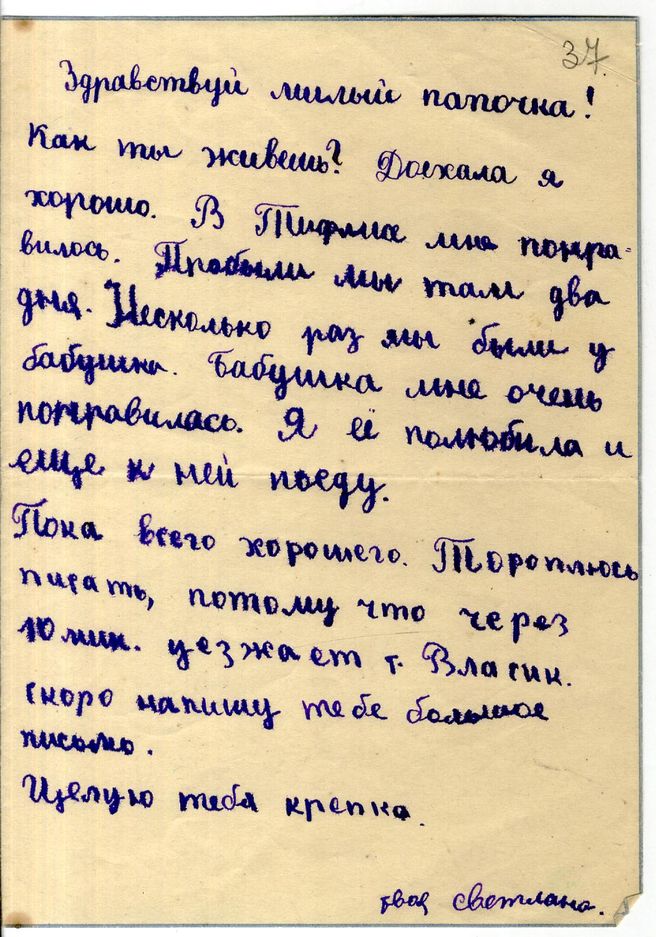 37.
Здравствуй милый папочка!
Как ты живешь? Доехала я
хорошо. В Тифлисе мне понра-
вилось. Пробыли мы там два
дня. Несколько раз мы были у
бабушки. Бабушка мне очень
понравилась. Я её полюбила и
еще к ней поеду.
Пока всего хорошего. Тороплюсь
писать, потому что через
10 мин. уезжает т. Власик.
Скоро напишу тебе большое
письмо.
Целую тебя крепко.
твоя Светлана.